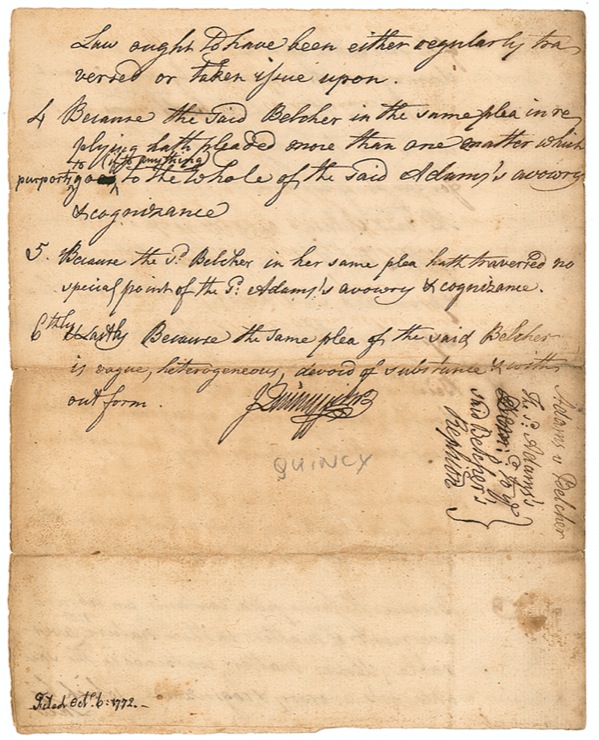 Law ought to have been either regularly tra
versed or taken issue upon.
4 Because the said Belcher in the same plea in re
plying hath pleaded more than one matter which
to (if to anything)
purports go to the whole of the said Adams's avowry
& cognizance
5. Because the sd. Belcher in her same plea hath traversed no
special point of the sd. Adams's avowry & cognizance.
6thly & Lastly Because the same plea of the said Belcher
is vague, heterogeneous, devoid of substance & with
out form.
J Quincy junr
QUINCY
Adams v Belcher
The sd. Adams's
to ye
said Belcher's
Filed Octr. 6: 1772.